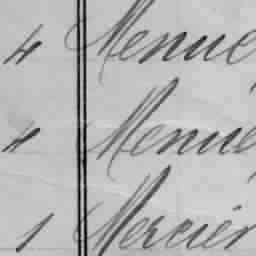 4 Menue
4 Menue
1 Mercier